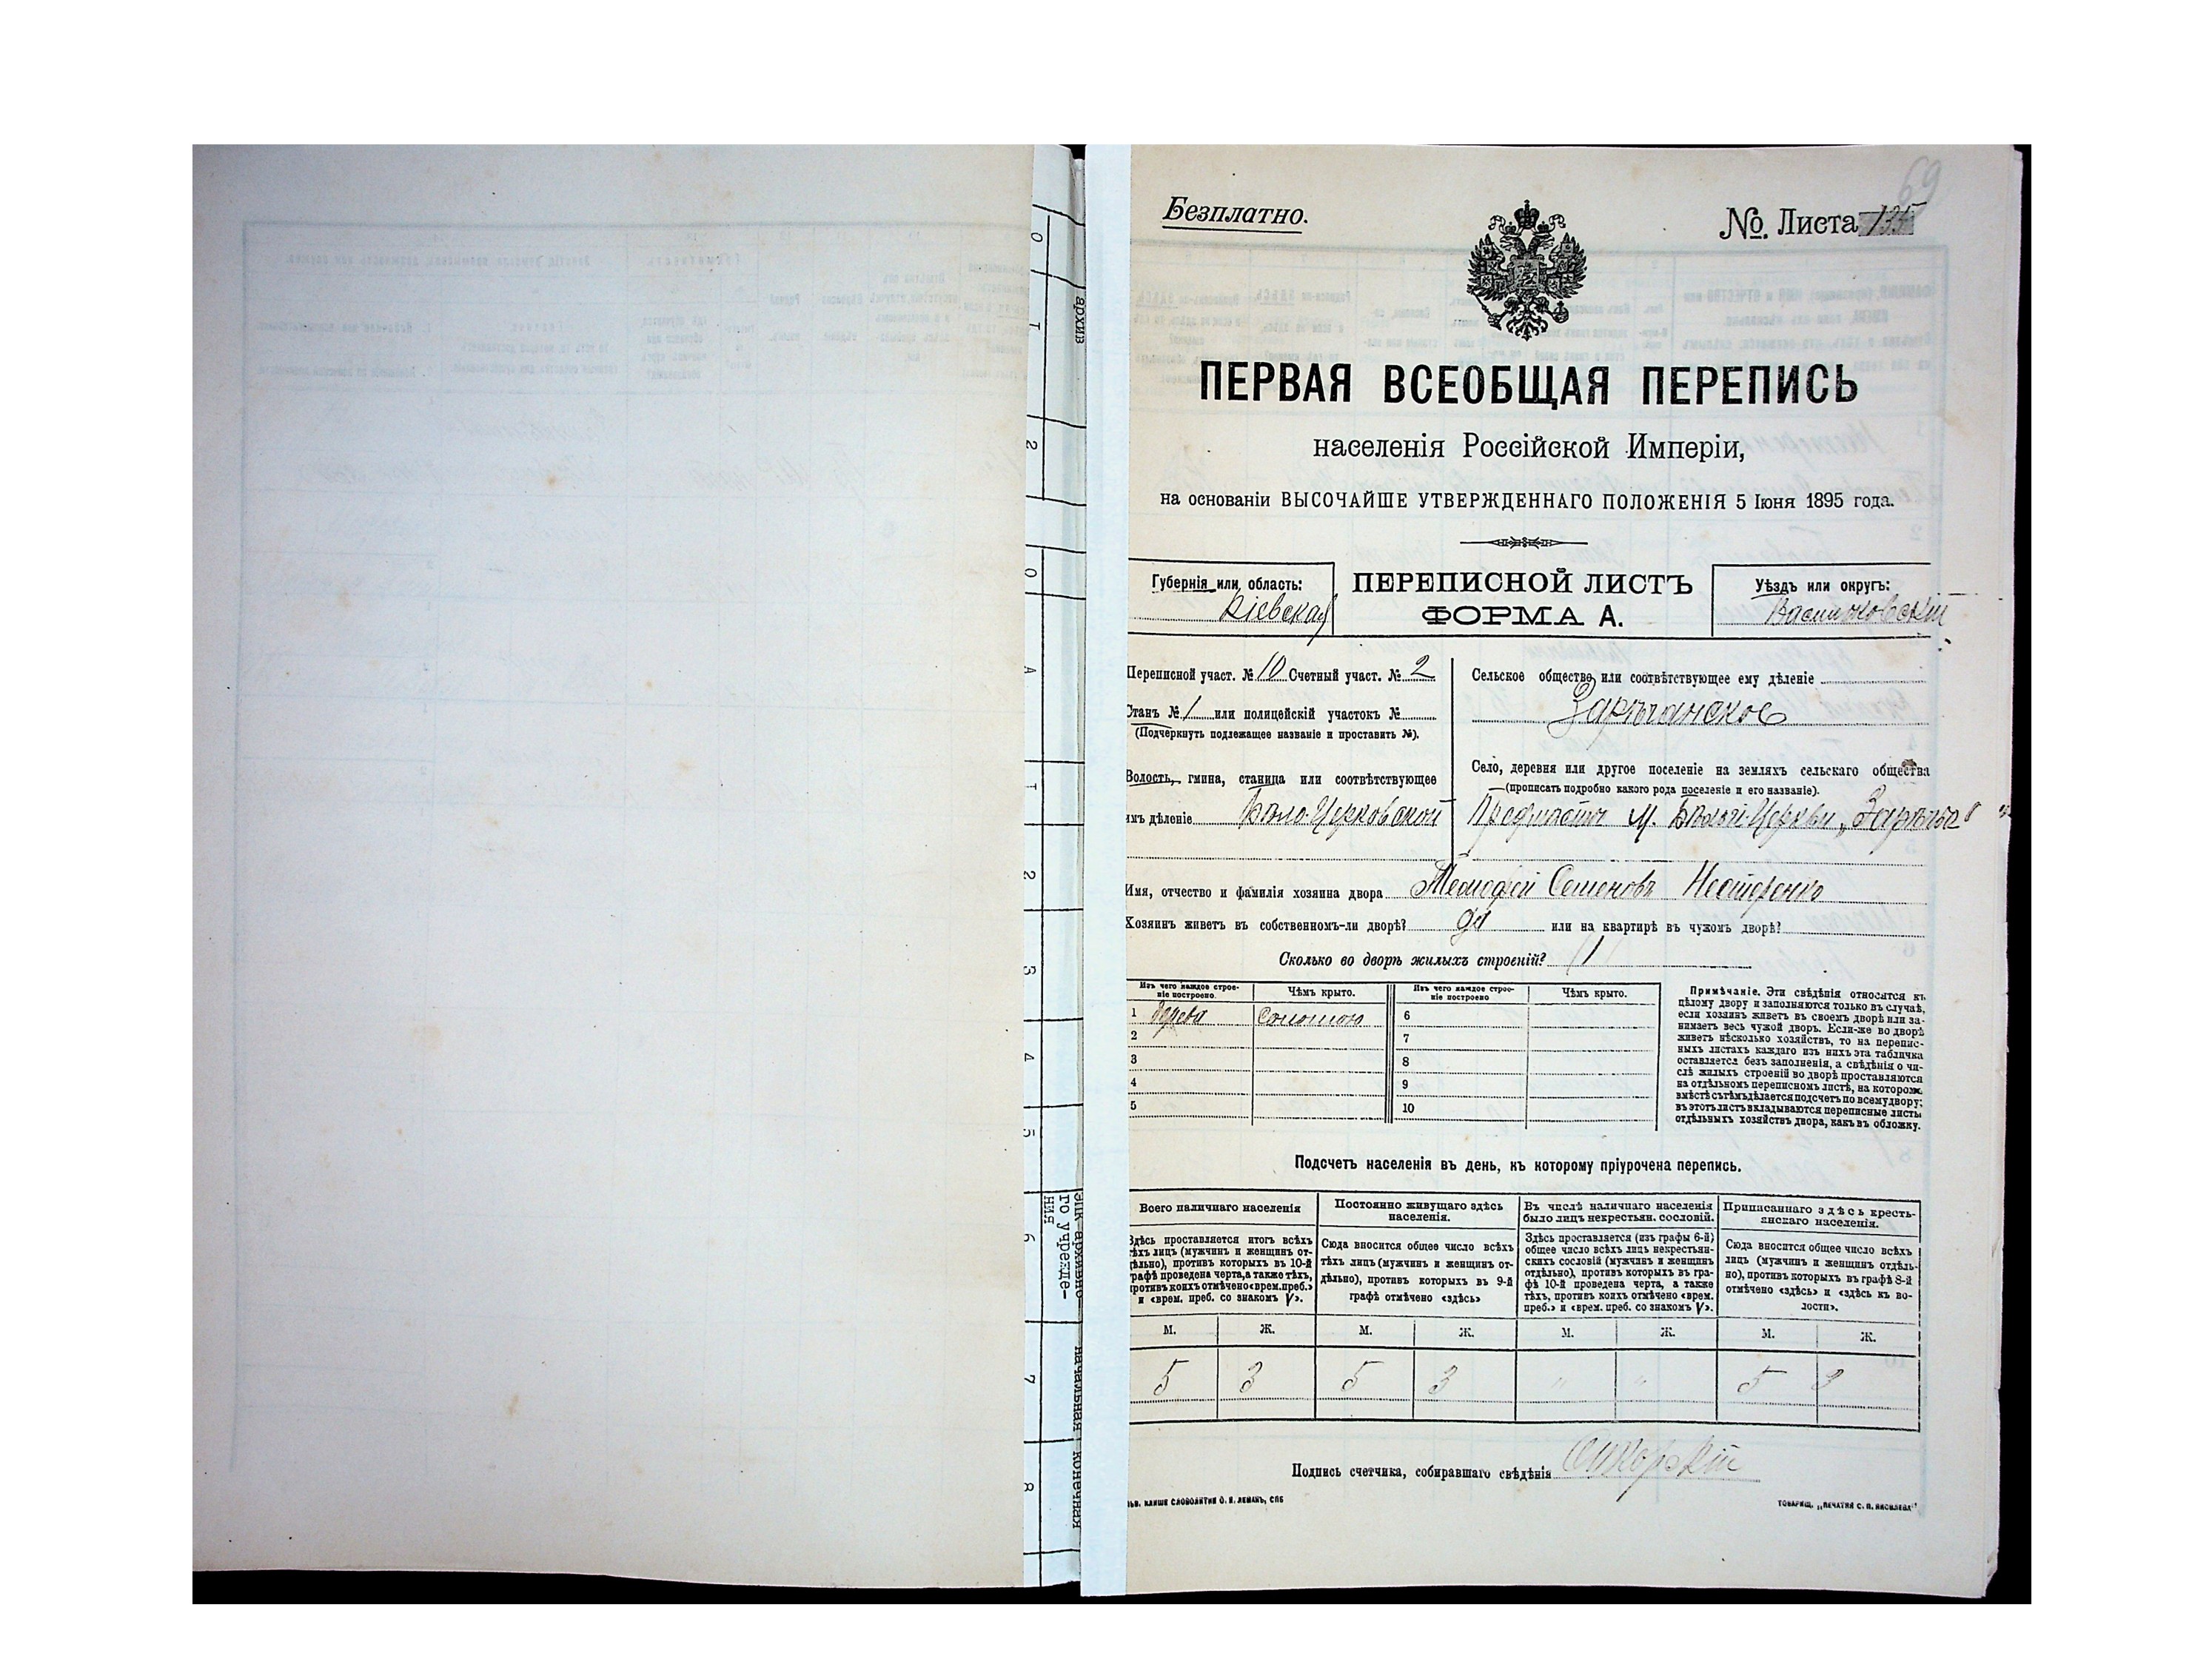 69
Безплатно.
№. Листа 135
ПЕРВАЯ ВСЕОБЩАЯ ПЕРЕПИСЬ
населенія Россійской Имперіи,
на основаніи ВЫСОЧАЙШЕ УТВЕРЖДЕННАГО ПОЛОЖЕНІЯ 5 Іюня 1895 года.
Губернія или область:
Кіевская
ПЕРЕПИСНОЙ ЛИСТЪ
ФОРМА А.
Уѣздъ или округъ:
Васильковскій
Переписной участ. № 10 Счетный участ. № 2
Станъ № 1 или полицейскій участокъ №
(Подчеркнуть подлежащее названіе и проставить №).
Волость, гмина, станица или соотвѣтствующее
имъ дѣленіе Бѣло-Церковской
Сельское общество или соотвѣтствующее ему дѣленіе
Зарѣчанское
Село, деревня или другое поселеніе на земляхъ сельскаго общества
(прописать подробно какого рода поселеніе и его названіе).
Предмѣстье М. Бѣлой-Церкви „Зарѣчье"
Имя, отчество и фамилія хозяина двора Тимофей Семеновъ Нестеренко
Хозяинъ живетъ въ собственномъ-ли дворѣ? да или на квартирѣ въ чужомъ дворѣ?
Сколько во дворѣ жилыхъ строеній? 1
Изъ чего каждое строеніе построено. Чѣмъ крыто. Изъ чего каждое строеніе построено Чѣмъ крыто.
1 дерева соломою 6
2 7
3 8
4 9
5 10
Примѣчаніе. Эти свѣдѣнія относятся къ
цѣлому двору и заполняются только въ случаѣ,
если хозяинъ живетъ въ своемъ дворѣ или за-
нимаетъ весь чужой дворъ. Если-же во дворѣ
живетъ нѣсколько хозяйствъ, то на перепис-
ныхъ листахъ каждаго изъ нихъ эта табличка
оставляется безъ заполненія, а свѣдѣнія о чи-
слѣ жилыхъ строеній во дворѣ проставляются
на отдѣльномъ переписномъ листѣ, на которомъ
вмѣстѣ съ тѣмъ дѣлается подсчетъ по всему двору;
въ этотъ листъ вкладываются переписные листы
отдѣльныхъ хозяйствъ двора, какъ въ обложку.
Подсчетъ населенія въ день, къ которому пріурочена перепись.
Всего наличнаго населенія
Здѣсь проставляется итогъ всѣхъ
тѣхъ лицъ (мужчинъ и женщинъ от-
дѣльно), противъ которыхъ въ 10-й
графѣ проведена черта, а также тѣхъ,
противъ коихъ отмѣчено «врем. преб.»
и «врем. преб. со знакомъ V».
Постоянно живущаго здѣсь
населенія.
Сюда вносится общее число всѣхъ
тѣхъ лицъ (мужчинъ и женщинъ от-
дѣльно), противъ которыхъ въ 9-й
графѣ отмѣчено «здѣсь»
Въ числѣ наличнаго населенія
было лицъ некрестьян. сословій.
Здѣсь проставляется (изъ графы 6-й)
общее число всѣхъ лицъ некрестьян-
скихъ сословій (мужчинъ и женщинъ
отдѣльно), противъ которыхъ въ гра-
фѣ 10-й проведена черта, а также
тѣхъ, противъ коихъ отмѣчено «врем.
преб.» и «врем. преб. со знакомъ V».
Приписаннаго здѣсь кресть-
янскаго населенія.
Сюда вносится общее число всѣхъ
лицъ (мужчинъ и женщинъ отдѣль-
но), противъ которыхъ въ графѣ 8-й
отмѣчено «здѣсь» и «здѣсь къ во-
лости».
М. Ж. М. Ж. М. Ж. М. Ж.
5 3 5 3 " " 5 3
Подпись счетчика, собиравшаго свѣдѣнія Сикорскій
КЛИШЕ СЛОВОЛИТНИ О. И. ЛЕМАНЪ, СПБ
ТОВАРИЩ. „ПЕЧАТНЯ С. П. ЯКОВЛЕВА"
архив
го учрежде-
ния
начальная конечная